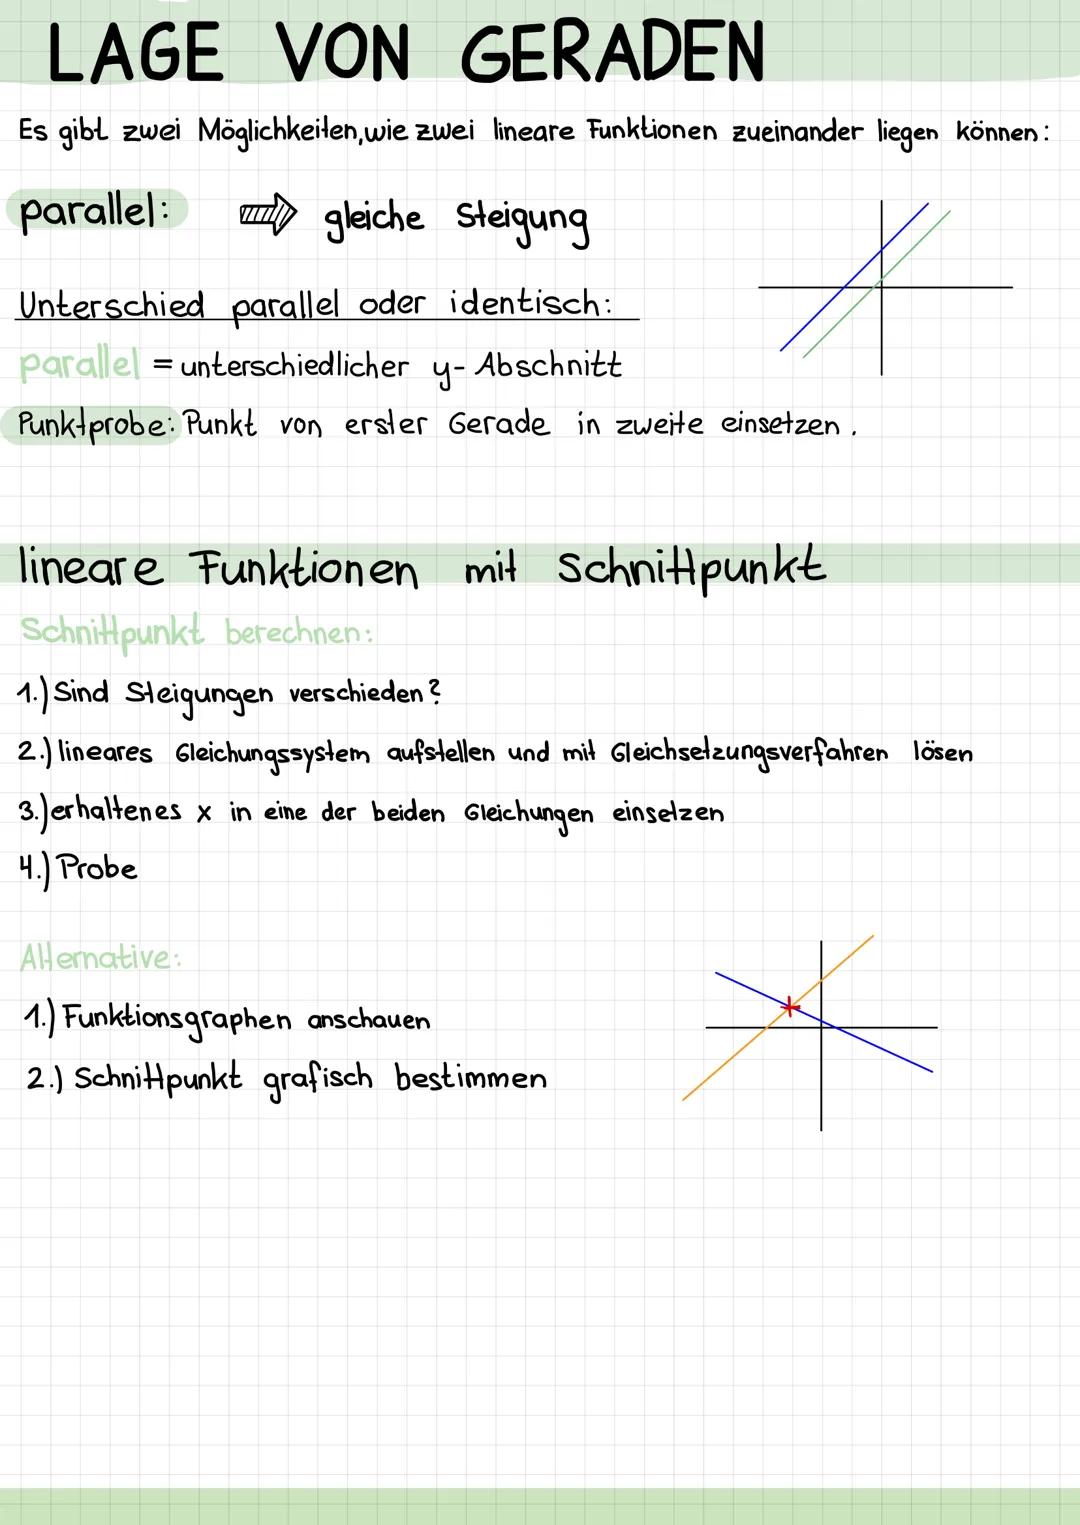 LAGE VON GERADEN
Es gibt zwei Möglichkeiten, wie zwei lineare Funktionen zueinander liegen können:
parallel: ⇒ gleiche Steigung
Unterschied parallel oder identisch:
parallel = unterschiedlicher y-Abschnitt
Punktprobe: Punkt von erster Gerade in zweite einsetzen.
lineare Funktionen mit Schnittpunkt
Schnittpunkt berechnen:
1.) Sind Steigungen verschieden?
2.) lineares Gleichungssystem aufstellen und mit Gleichsetzungsverfahren lösen
3.) erhaltenes x in eine der beiden Gleichungen einsetzen
4.) Probe
Alternative:
1.) Funktionsgraphen anschauen
2.) Schnittpunkt grafisch bestimmen